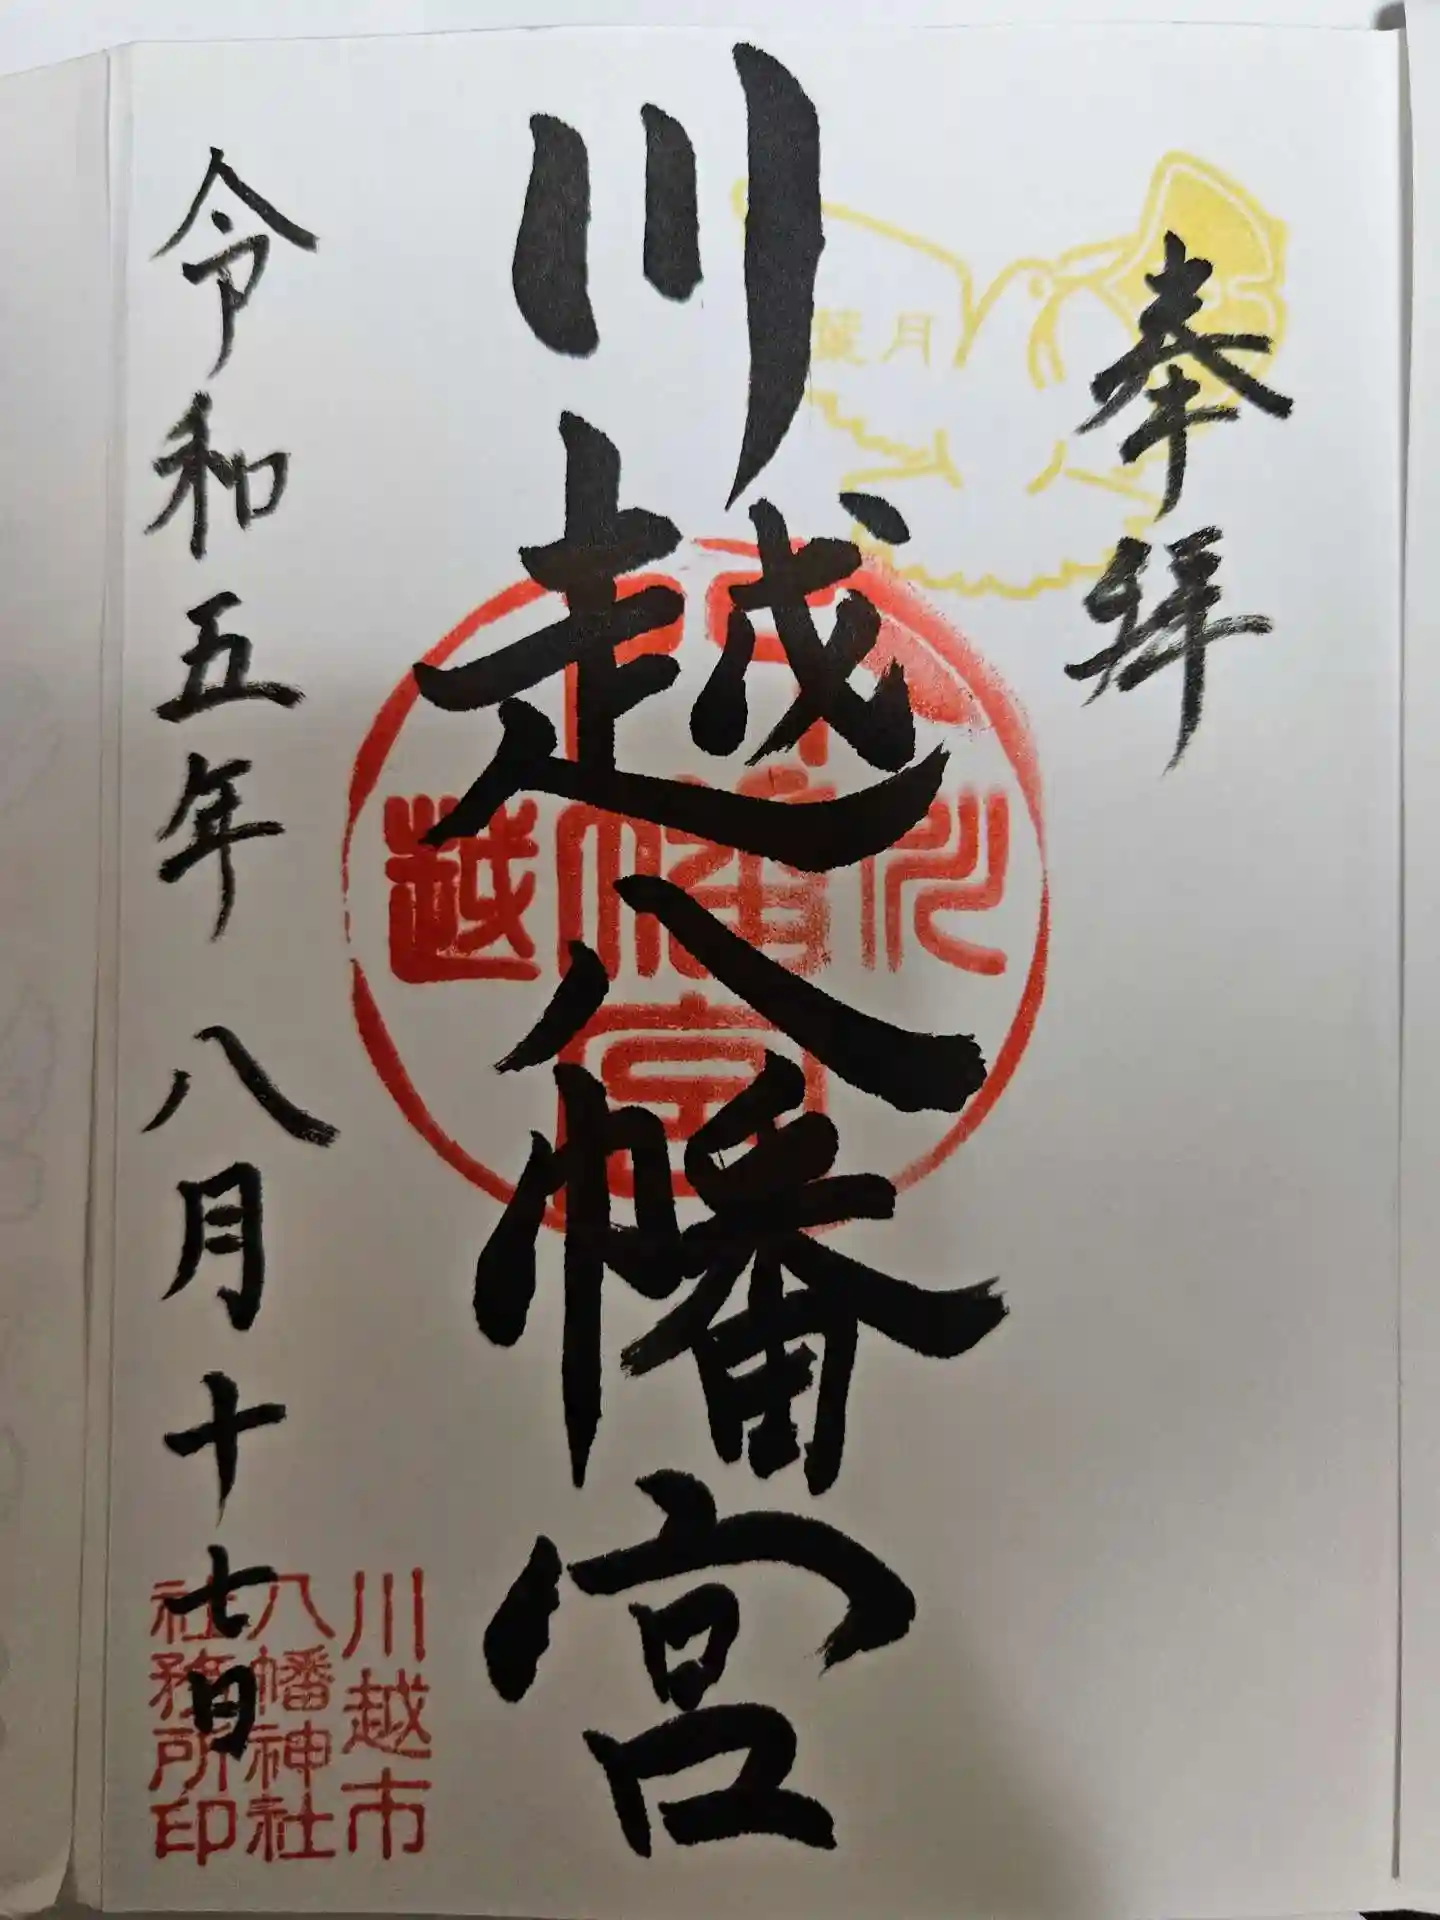 奉拝
葉月
川越八幡宮
川越
八幡宮
令和五年 八月十七日
川越市
八幡神社
社務所印